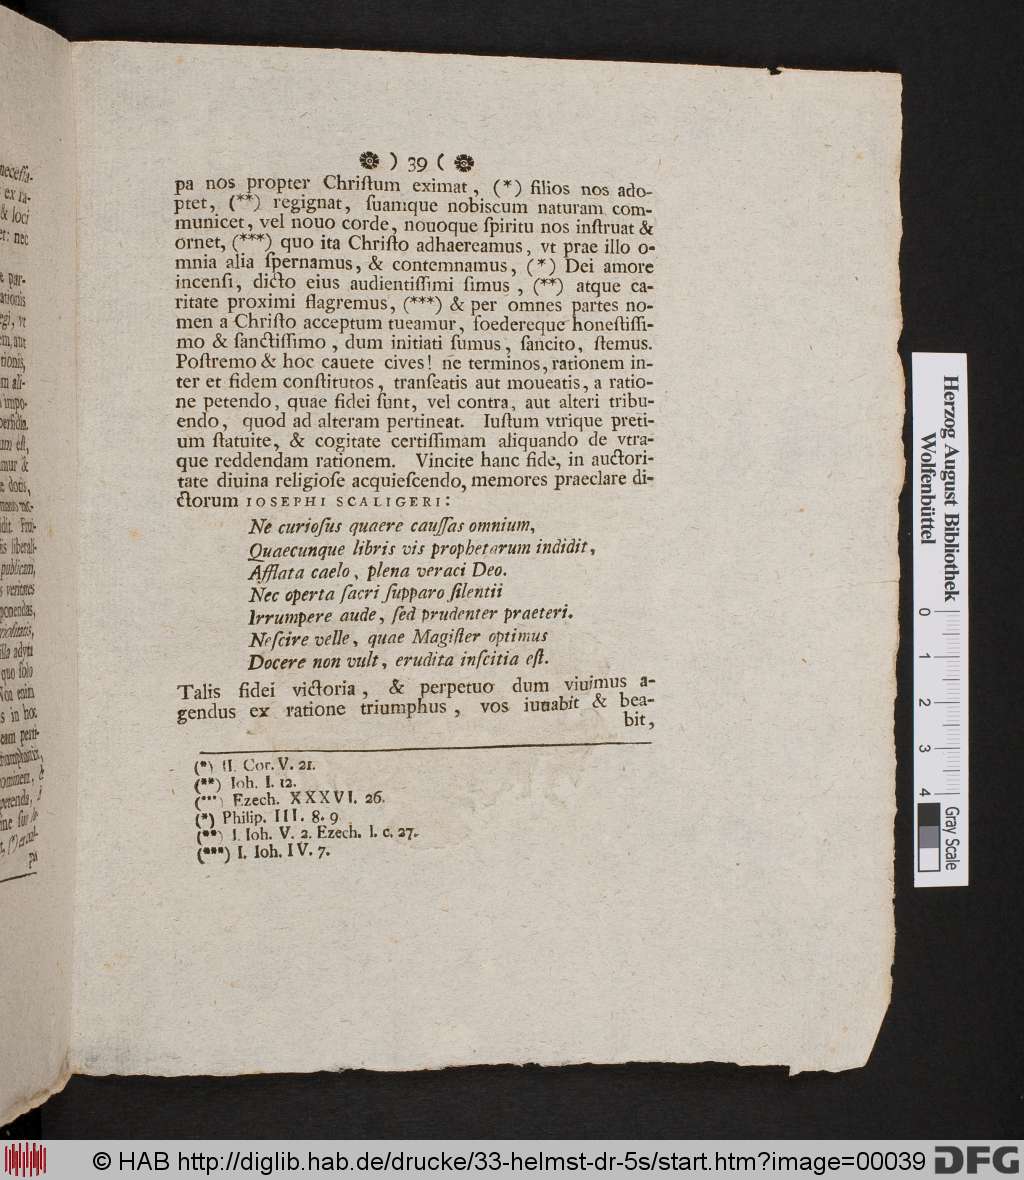 ) 39 (
pa nos propter Chriſtum eximat, (*) filios nos ado-
ptet, (**) regignat, ſuamque nobiscum naturam com-
municet, vel nouo corde, nouoque ſpiritu nos inſtruat &
ornet, (***) quo ita Chriſto adhaereamus, vt prae illo o-
mnia alia ſpernamus, & contemnamus, (*) Dei amore
incenſi, dicto eius audientiſſimi ſimus, (**) atque ca-
ritate proximi flagremus, (***) & per omnes partes no-
men a Chriſto acceptum tueamur, foedereque honeſtiſſi-
mo & ſanctiſſimo, dum initiati ſumus, ſancito, ſtemus.
Poſtremo & hoc cauete cives! ne terminos, rationem in-
ter et fidem conſtitutos, tranſeatis aut moueatis, a ratio-
ne petendo, quae fidei ſunt, vel contra, aut alteri tribu-
endo, quod ad alteram pertineat. Iuſtum vtrique preti-
um ſtatuite, & cogitate certiſſimam aliquando de vtra-
que reddendam rationem. Vincite hanc fide, in auctori-
tate diuina religioſe acquieſcendo, memores praeclare di-
ctorum IOSEPHI SCALIGERI:
Ne curioſus quaere cauſſas omnium,
Quaecunque libris vis prophetarum indidit,
Afflata caelo, plena veraci Deo.
Nec operta ſacri ſupparo ſilentii
Irrumpere aude, ſed prudenter praeteri.
Neſcire velle, quae Magiſter optimus
Docere non vult, erudita inſcitia eſt.
Talis fidei victoria, & perpetuo dum viuimus a-
gendus ex ratione triumphus, vos iuuabit & bea-
bit,
(*) II. Cor. V. 21.
(**) Ioh. I. 12.
(***) Ezech. XXXVI. 26.
(*) Philip. III. 8. 9
(**) I. Ioh. V. 2. Ezech. l. c. 27.
(***) I. Ioh. IV. 7.
neceſſa-
ex ra-
& loci
et: nec
par-
ationis
egi, vt
em, aut
tionis,
m ali-
impo-
perfidia.
um eſt,
mur &
dotis,
dit.
is liberali-
publicam,
veriores
ponendas,
illa adyta
quo ſolo
Non enim
s in hoc
eam perti-
triumphantur,
hominem, &
petenda,
pa
Herzog August Bibliothek
Wolfenbüttel
0 1 2 3 4
Gray Scale
© HAB http://diglib.hab.de/drucke/33-helmst-dr-5s/start.htm?image=00039
DFG